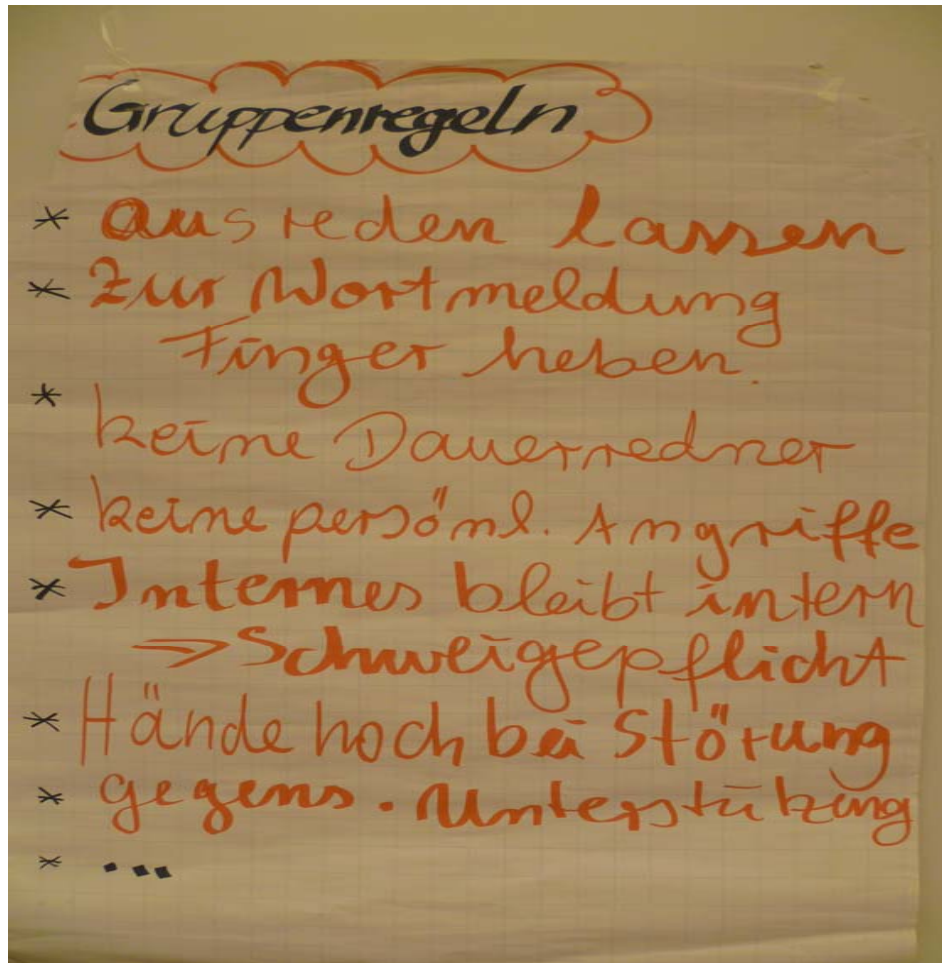 Gruppenregeln
* ausreden lassen
* Zur Wortmeldung
Finger heben.
*
keine Dauerredner
* keine persönl. Angriffe
* Internes bleibt intern
=> Schweigepflicht
* Hände hoch bei Störung
* gegens. Unterstützung
* ...